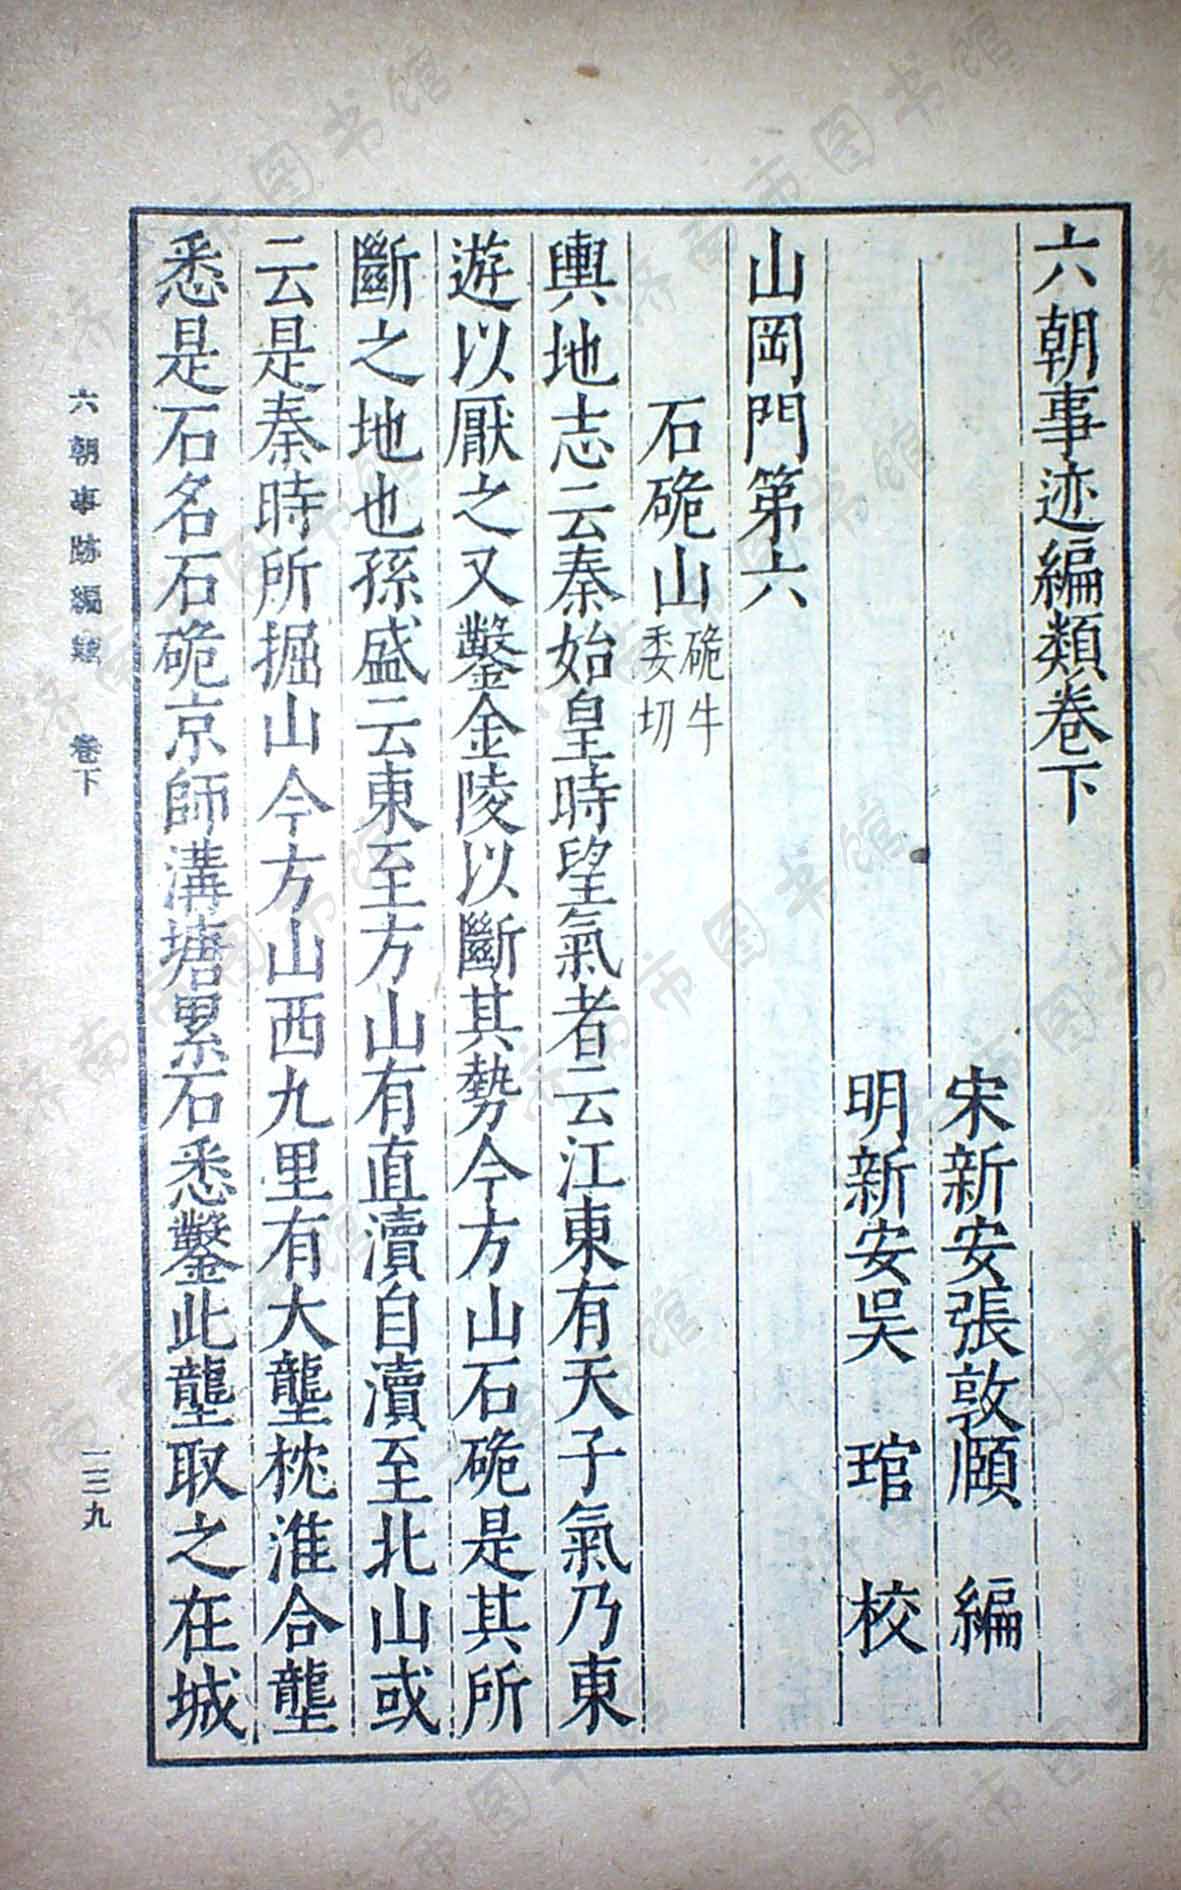 六朝事迹編類卷下
宋新安張敦頤　編
明新安吳　琯　校
山岡門第六
石硊山硊牛委切
輿地志云秦始皇時望氣者云江東有天子氣乃東
遊以厭之又鑿金陵以斷其勢今方山石硊是其所
斷之地也孫盛云東至方山有直瀆自瀆至北山或
云是秦時所掘山今方山西九里有大壟枕淮合壟
悉是石名石硊京師溝塘累石悉鑿此壟取之在城
六朝事跡編類　卷下
一三九
济南市图书馆